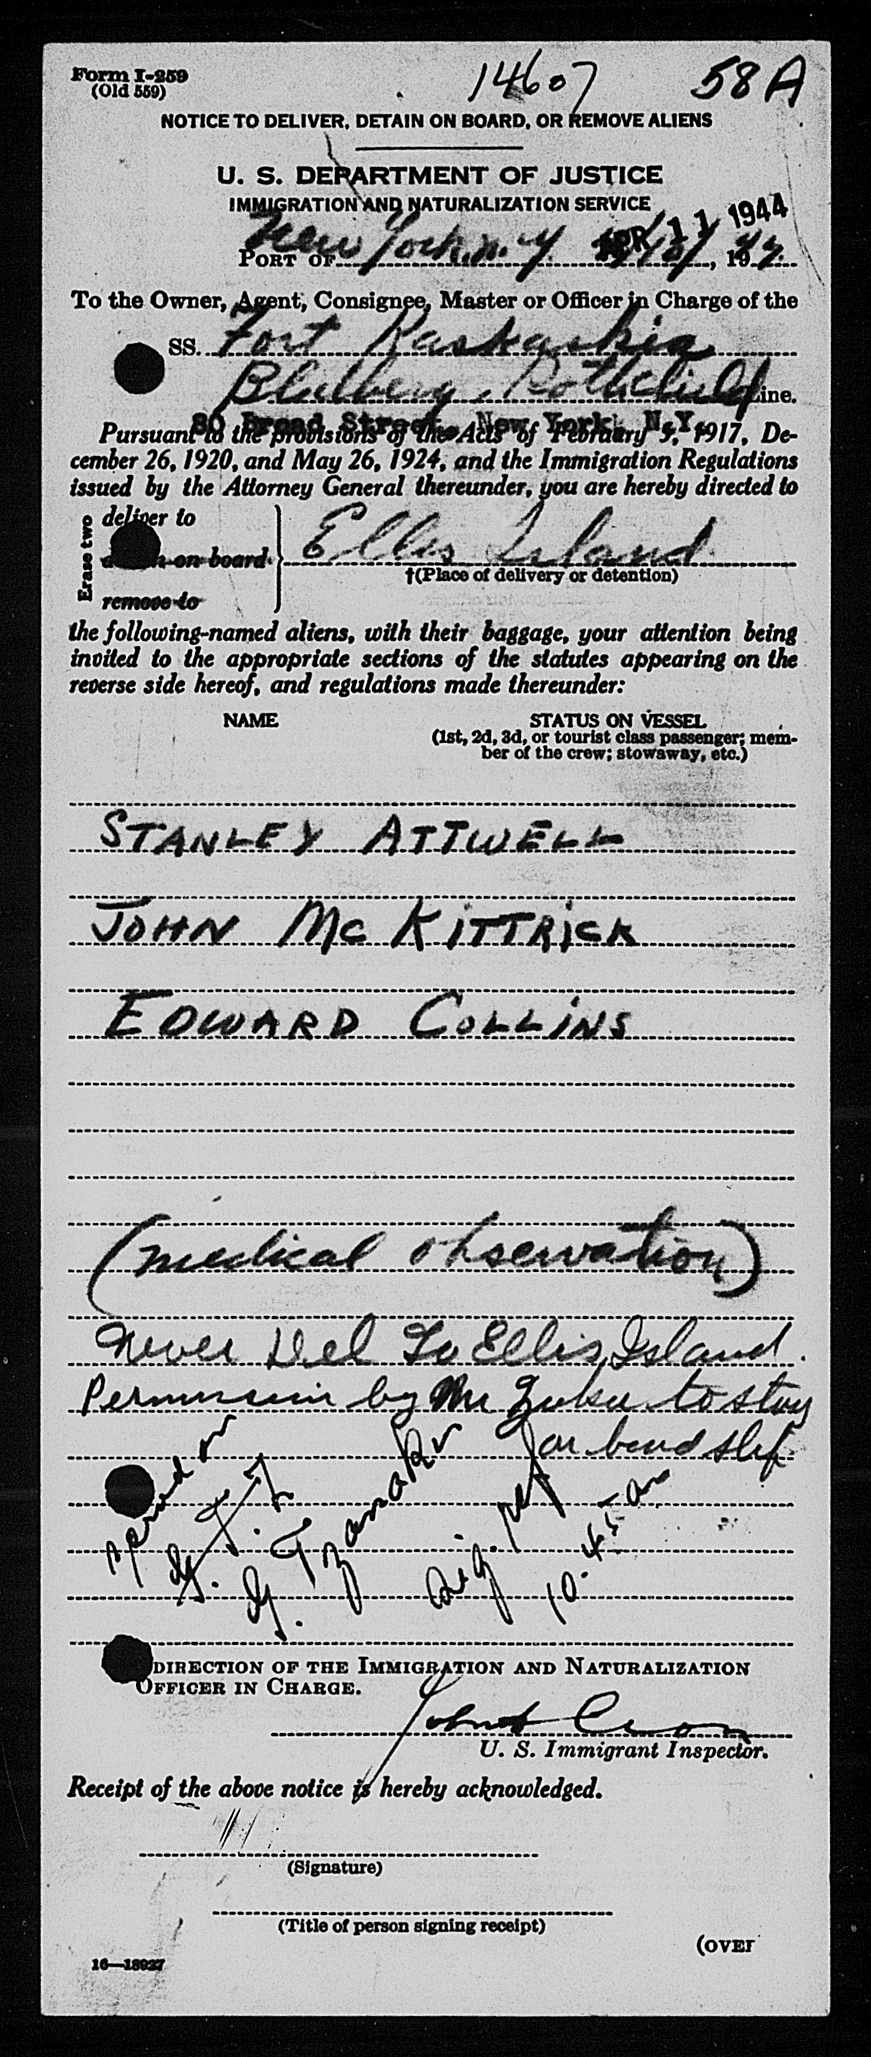 Form I-259
(Old 559)
14607
58 A
NOTICE TO DELIVER, DETAIN ON BOARD, OR REMOVE ALIENS
U. S. DEPARTMENT OF JUSTICE
IMMIGRATION AND NATURALIZATION SERVICE
APR 11 1944
PORT OF New York, N.Y. , 1944.
To the Owner, Agent, Consignee, Master or Officer in Charge of the
SS. Fort Kaskaskia
Blulberg, Rothchild Line.
80 Broad Street, New York, N.Y.
Pursuant to the provisions of the Acts of February 5, 1917, De-
cember 26, 1920, and May 26, 1924, and the Immigration Regulations
issued by the Attorney General thereunder, you are hereby directed to
Erase two
deliver to
on board
remove to
Ellis Island
†(Place of delivery or detention)
the following-named aliens, with their baggage, your attention being
invited to the appropriate sections of the statutes appearing on the
reverse side hereof, and regulations made thereunder:
NAME
STATUS ON VESSEL
(1st, 2d, 3d, or tourist class passenger; mem-
ber of the crew; stowaway, etc.)
STANLEY ATTWELL
JOHN McKITTRICK
EDWARD COLLINS
(medical observation)
Never Del To Ellis Island.
Permission by Mr to stay
10.45 am
DIRECTION OF THE IMMIGRATION AND NATURALIZATION
OFFICER IN CHARGE.
John
U. S. Immigrant Inspector.
Receipt of the above notice is hereby acknowledged.
(Signature)
(Title of person signing receipt)
(OVER
16—18937